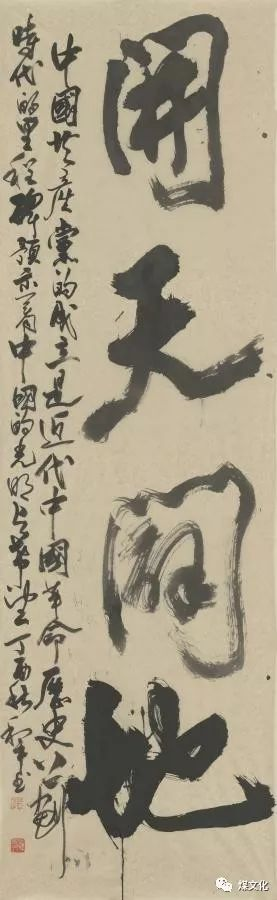 開天闢地
中國共產黨的成立是近代中國革命歷史上劃
時代的里程碑預示着中國的光明与希望丁酉秋
煤文化